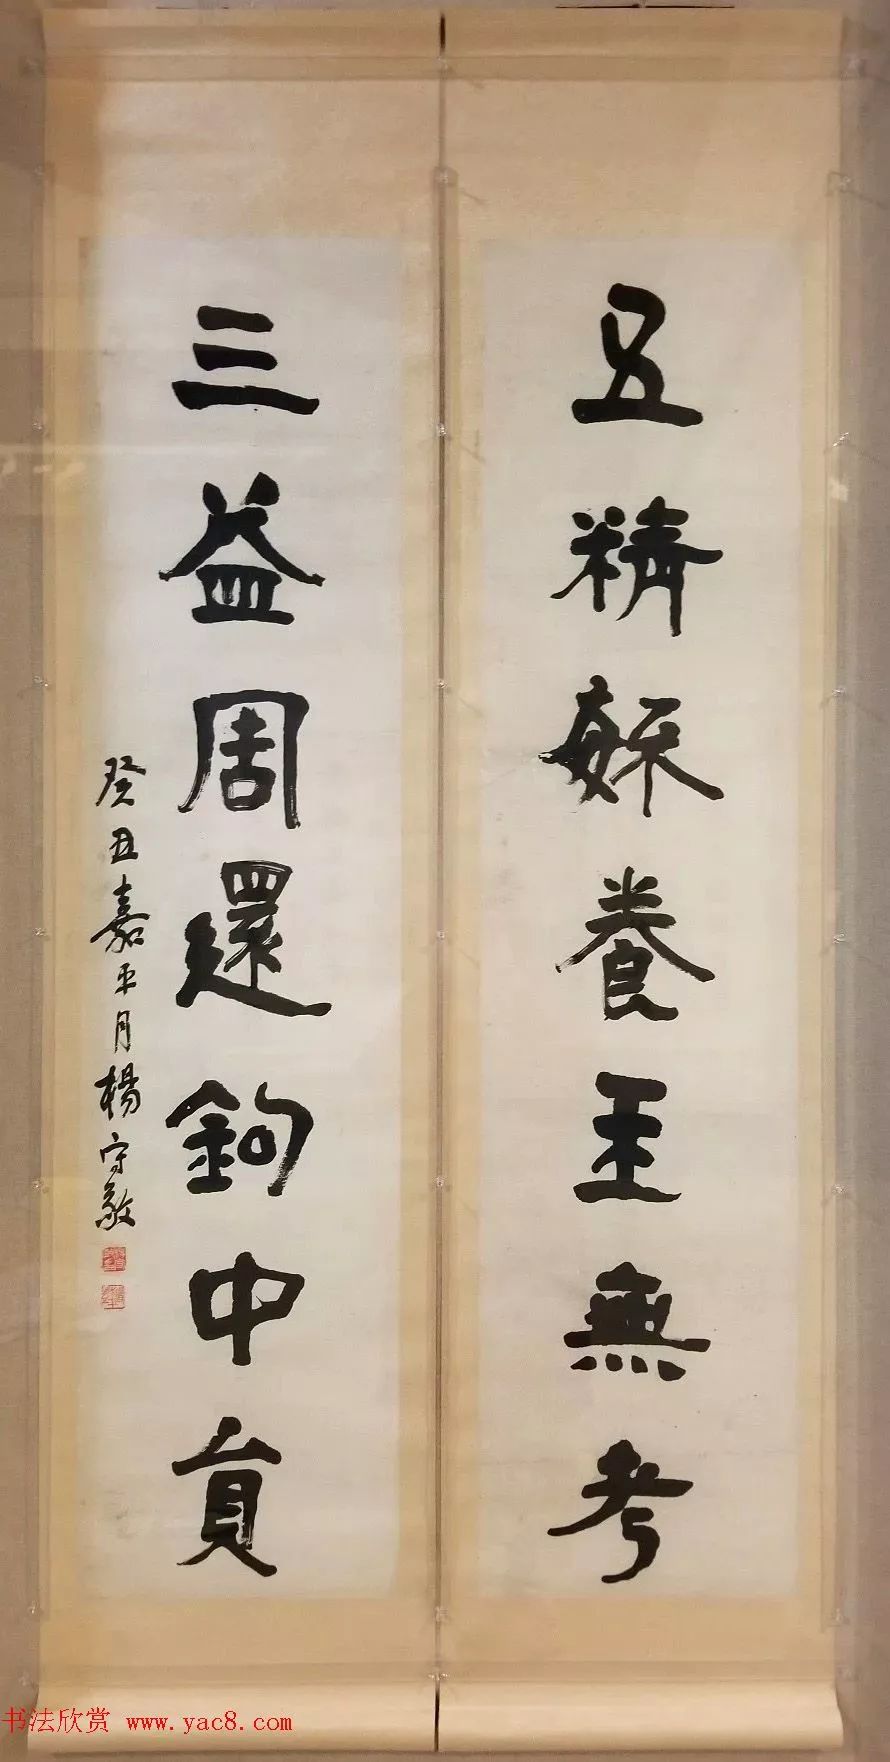 五精養無考
三益周還鉤中貞
癸丑嘉平月楊守敬
书法欣赏 www.yac8.com